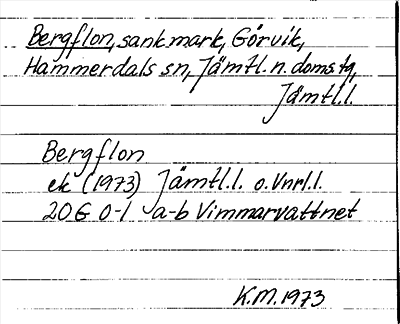 Bergflon, sankmark, Görvik,
Hammerdals sn, Jämtl. n. doms.tg,
Jämtl.l.
Bergflon
ek (1973) Jämtl.l. o. Vnrl.l.
20G 0-1 a-b Vimmarvattnet
K.M. 1973